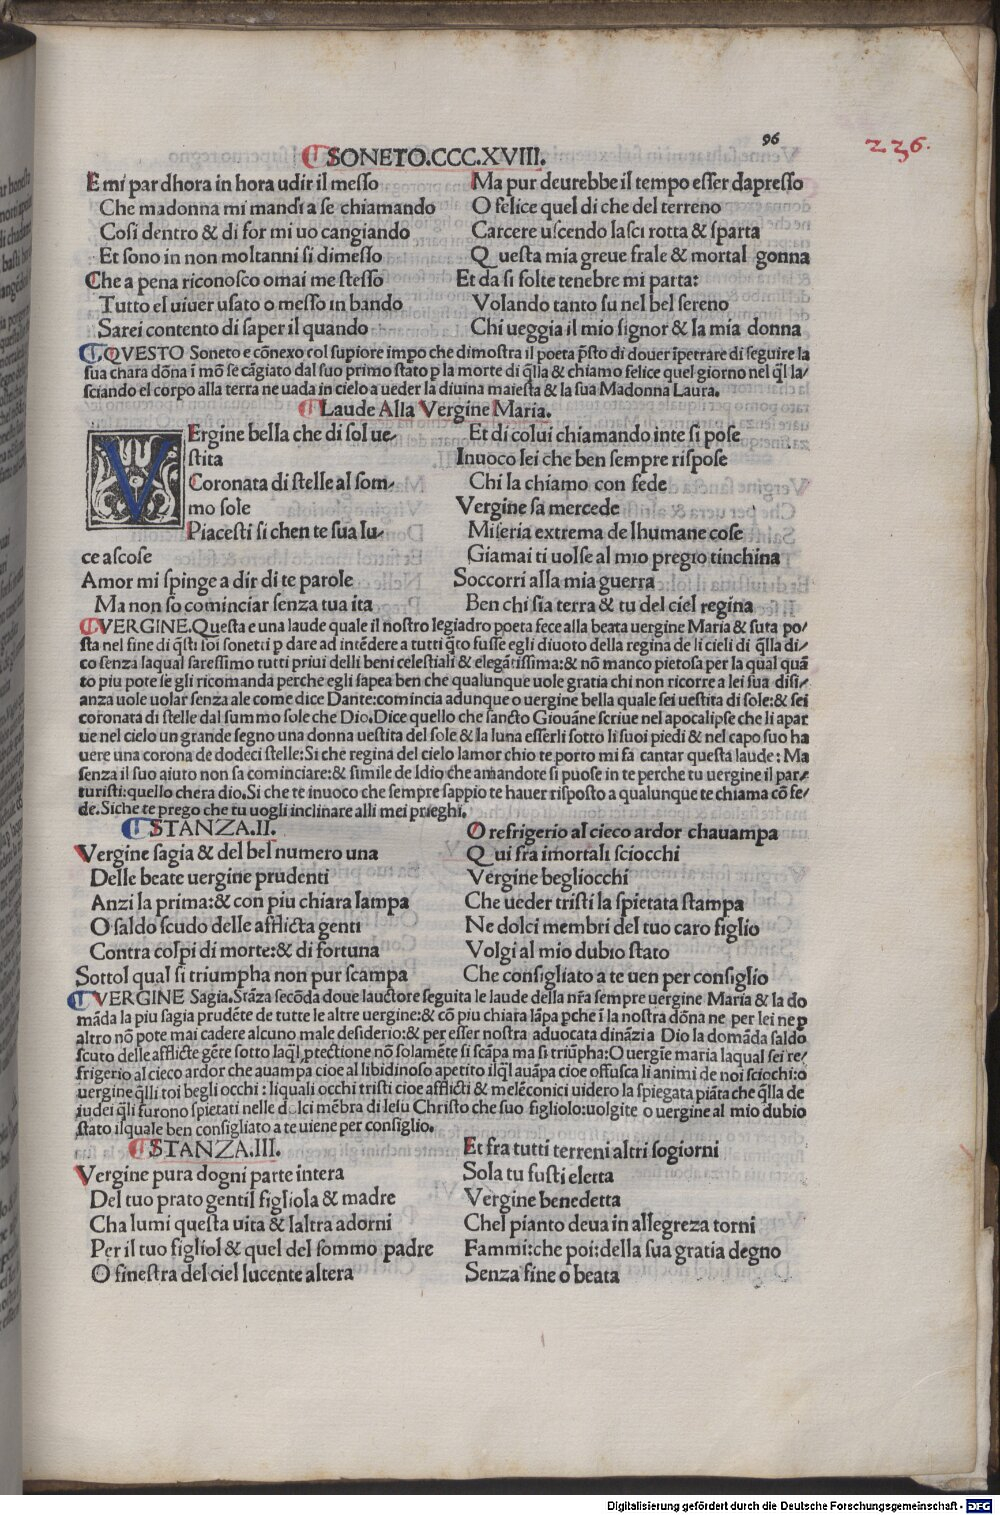 96
236.
SONETO.CCC.XVIII.
E mi par dhora in hora udir il messo
Che madonna mi mandi a se chiamando
Cosi dentro & di for mi uo cangiando
Et sono in non moltanni si dimesso
Che a pena riconosco omai me stesso
Tutto el uiuer usato o messo in bando
Sarei contento di saper il quando
Ma pur deurebbe il tempo esser dapresso
O felice quel di che del terreno
Carcere uscendo lasci rotta & sparta
Questa mia greue frale & mortal gonna
Et da si folte tenebre mi parta:
Volando tanto su nel bel sereno
Chi ueggia il mio signor & la mia donna
QVESTO Soneto e cōnexo col supiore impo che dimostra il poeta p̄sto di douer īpetrare di seguire la
sua chara dōna ī mō se cāgiato dal suo primo stato p la morte di q̄lla & chiamo felice quel giorno nel q̄l la/
sciando el corpo alla terra ne uada in cielo a ueder la diuina maiesta & la sua Madonna Laura.
Laude Alla Vergine Maria.
VErgine bella che di sol ue/
stita
Coronata di stelle al som/
mo sole
Piacesti si chen te sua lu/
ce ascose
Amor mi spinge a dir di te parole
Ma non so cominciar senza tua ita
Et di colui chiamando inte si pose
Inuoco lei che ben sempre rispose
Chi la chiamo con fede
Vergine sa mercede
Miseria extrema de lhumane cose
Giamai ti uolse al mio pregio tinchina
Soccorri alla mia guerra
Ben chi sia terra & tu del ciel regina
VERGINE.Questa e una laude quale il nostro legiadro poeta fece alla beata uergine Maria & futa po/
sta nel fine di q̄sti soi sonetti p dare ad intēdere a tutti q̄to fusse egli diuoto della regina de li cieli di q̄lla di/
co senza laqual saressimo tutti priui delli beni celestiali & elegātissima:& nō manco pietosa per la qual quā
to piu pote se gli ricomanda perche egli sapea ben che qualunque uole gratia chi non ricorre a lei sua disi/
anza uole uolar senza ale come dice Dante:comincia adunque o uergine bella quale sei uestita di sole:& sei
coronata di stelle dal summo sole che Dio.Dice quello che sancto Giouāne scriue nel apocalipse che li apar
ue nel cielo un grande segno una donna uestita del sole & la luna esserli sotto li suoi piedi & nel capo suo ha
uere una corona de dodeci stelle:Si che regina del cielo lamor chio te porto mi fa cantar questa laude: Ma
senza il suo aiuto non sa cominciare:& simile de Idio che amandote si puose in te perche tu uergine il par/
turisti:quello chera dio.Si che te inuoco che sempre sappio te hauer risposto a qualunque te chiama cō fe/
de.Siche te prego che tu uogli inclinare alli mei prieghi.
STANZA.II.
Vergine sagia & del bel numero una
Delle beate uergine prudenti
Anzi la prima:& con piu chiara lampa
O saldo scudo delle afflicta genti
Contra colpi di morte:& di fortuna
Sottol qual si triumpha non pur scampa
O refrigerio al cieco ardor chauampa
Qui fra imortali sciocchi
Vergine begliocchi
Che ueder tristi la spietata stampa
Ne dolci membri del tuo caro figlio
Volgi al mio dubio stato
Che consigliato a te uen per consiglio
VERGINE Sagia.Stāza secōda doue lauctore seguita le laude della nr̄a sempre uergine Maria & la do
māda la piu sagia prudēte de tutte le altre uergine:& cō piu chiara lāpa pche ī la nostra dōna ne per lei ne p
altro nō pote mai cadere alcuno male desiderio:& per esser nostra aduocata dināzi a Dio la domāda saldo
scuto delle afflicte gēte sotto laq̄l ptectione nō solamēte si scāpa ma si triūpha:O uergīe maria laqual sei re/
frigerio al cieco ardor che auampa cioe al libidinoso apetito ilq̄l auāpa cioe offusca li animi de noi sciochi:o
uergine q̄lli toi begli occhi : liquali occhi tristi cioe afflicti & melēconici uidero la spiegata piāta che q̄lla de
iudei q̄li furono spietati nelle dolci mēbra di Iesu Christo che suo figliolo:uolgite o uergine al mio dubio
stato ilquale ben consigliato a te uiene per consiglio.
STANZA.III.
Vergine pura dogni parte intera
Del tuo prato gentil figliola & madre
Cha lumi questa uita & laltra adorni
Per il tuo figliol & quel del sommo padre
O finestra del ciel lucente altera
Et fra tutti terreni altri sogiorni
Sola tu fusti eletta
Vergine benedetta
Chel pianto deua in allegreza torni
Fammi:che poi:della sua gratia degno
Senza fine o beata
Digitalisierung gefördert durch die Deutsche Forschungsgemeinschaft - DFG